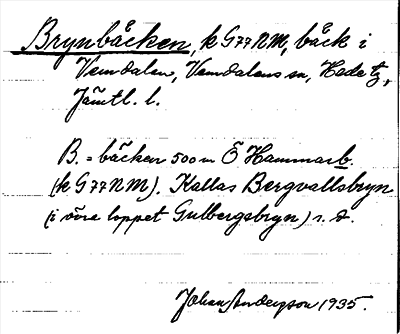 Brynbäcken, k G77NM, bäck i
Vemdalen, Vemdalens sn, Hede tg,
Jämtl. l.
B. = bäcken 500 m Ö Hammarb.
(k G77NM). Kallas Bergvallsbryn
(i övre loppet Gulbergsbryn) s. st.
Johan Anderzon 1935.